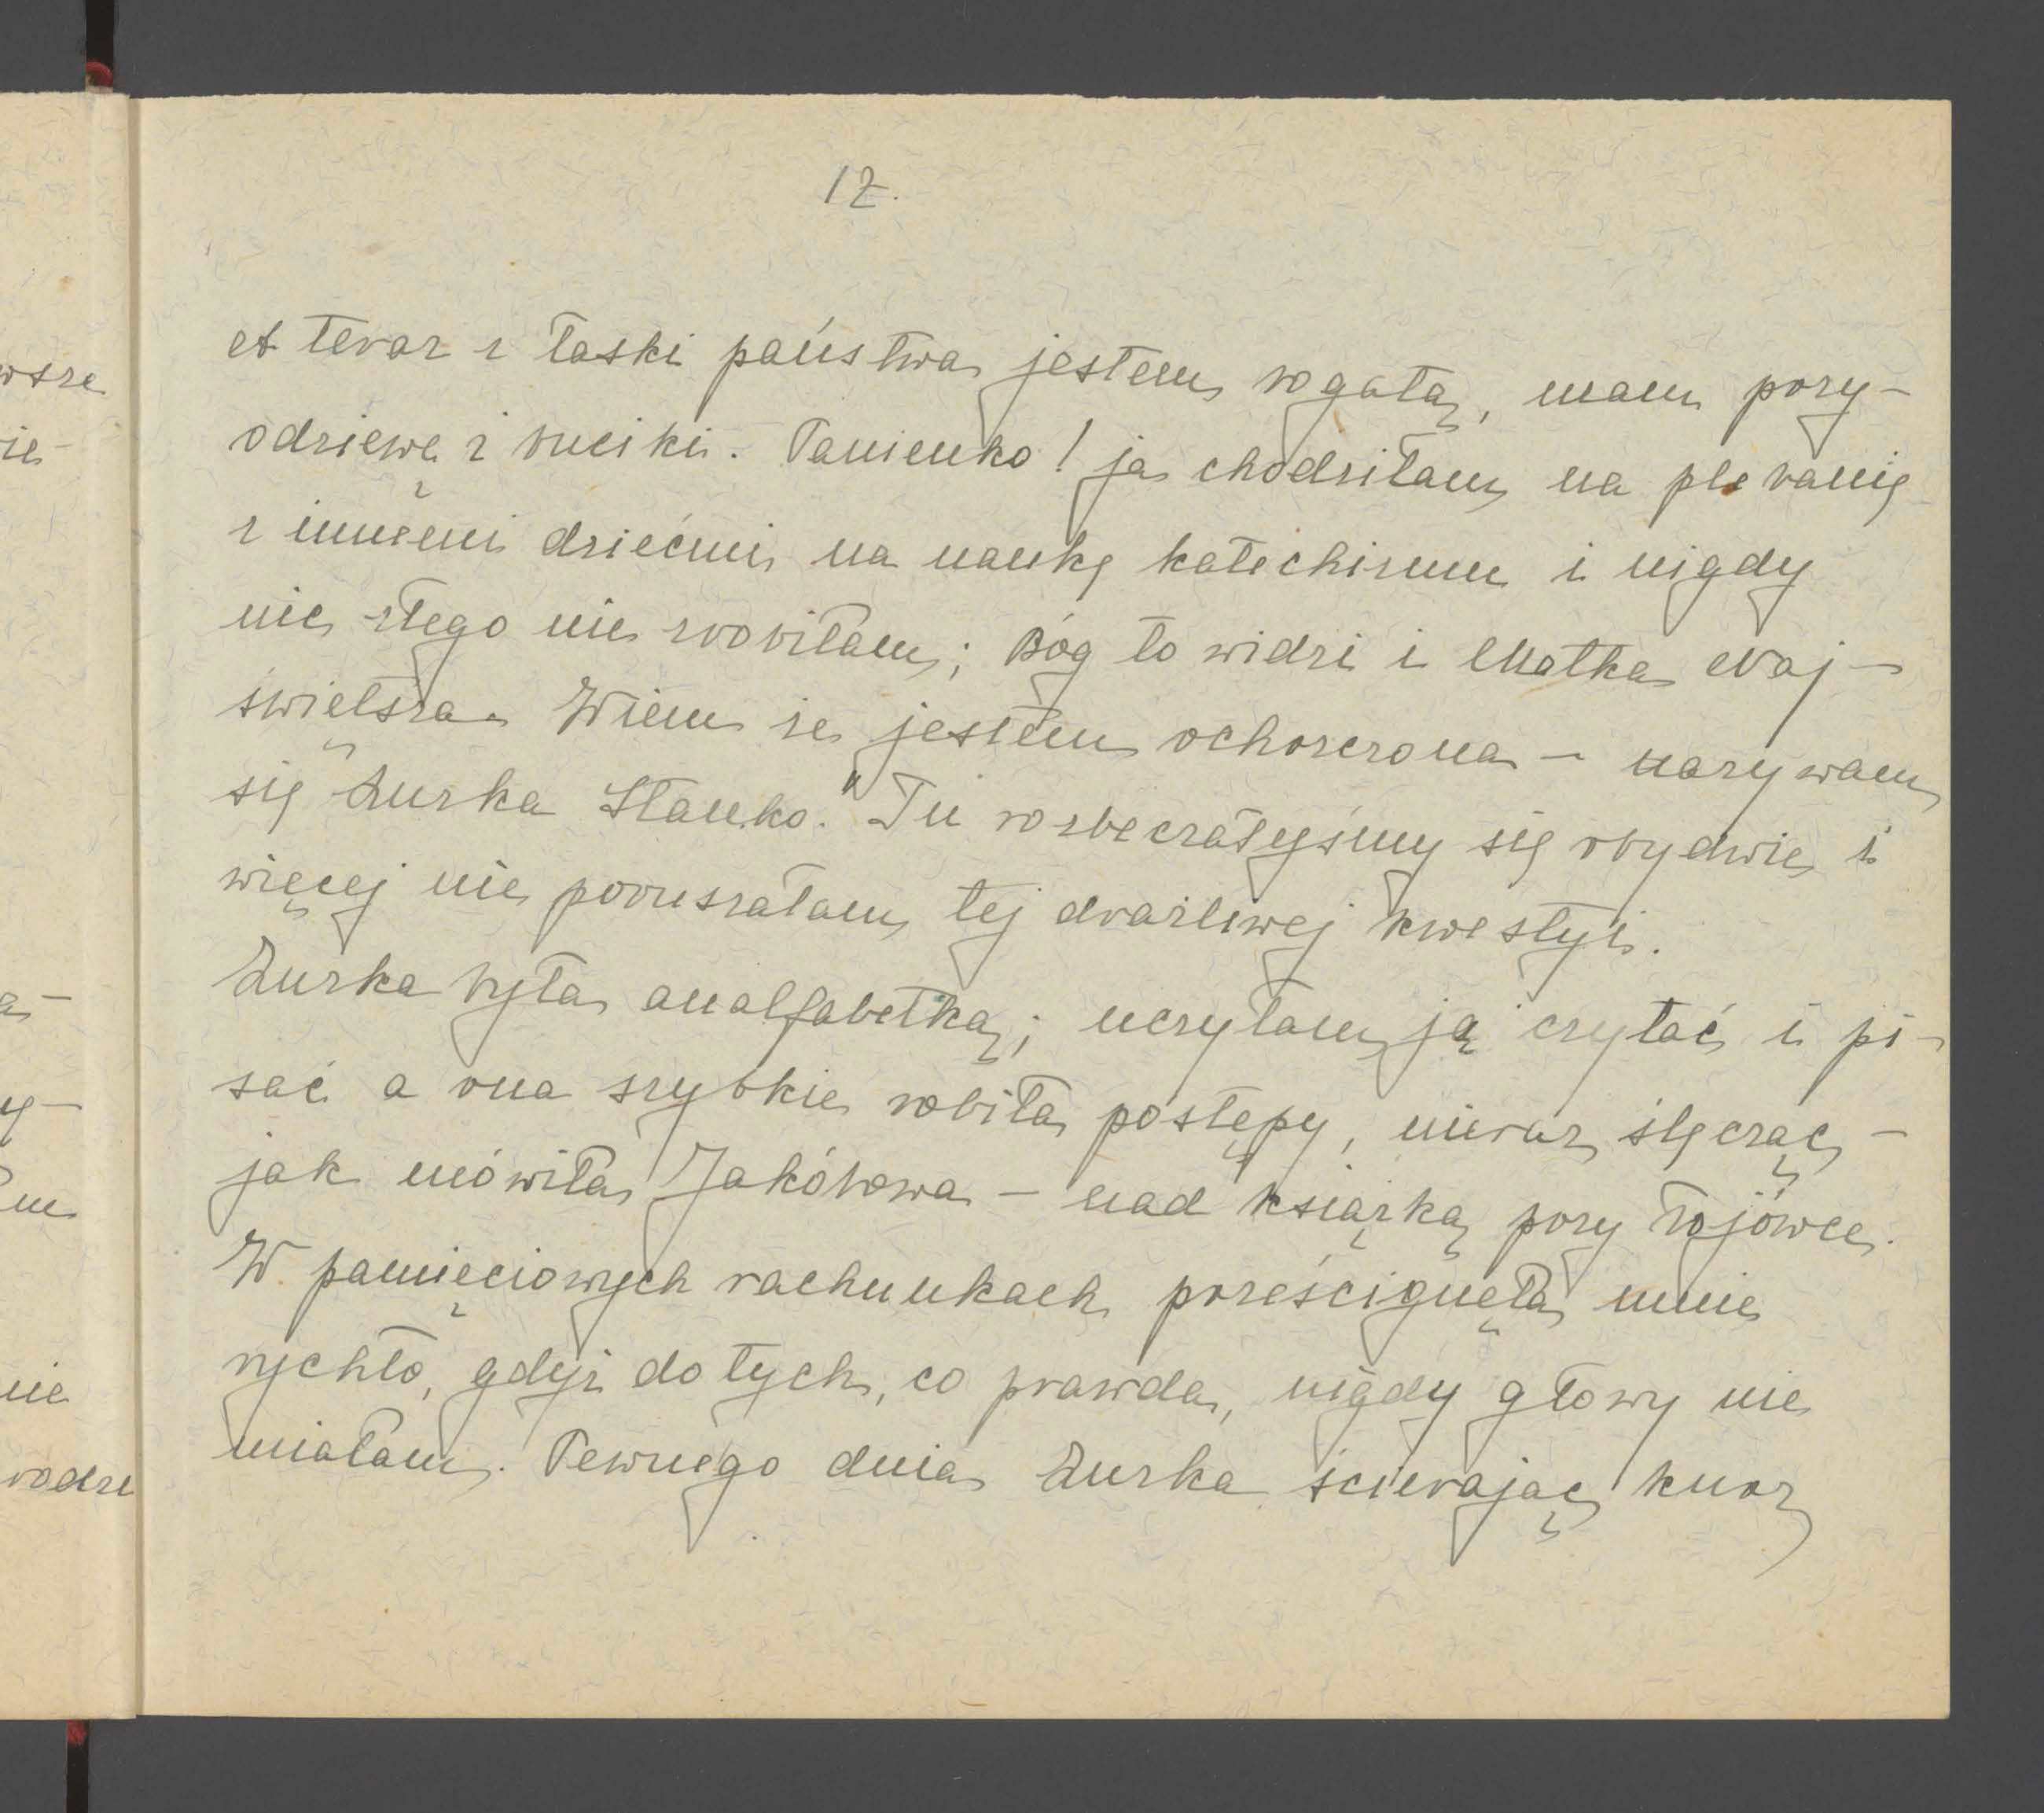 12.
A teraz z łaski państwa jestem bogatą, mam przy-
odziewę i buciki. Panienko! ja chodziłam na plebanię
z innemi dziećmi na naukę katechizmu i nigdy
nic złego nie zrobiłam; Bóg to widzi i Matka Naj-
świętsza. Wiem że jestem ochrzczona – nazywam
się Zuska Stanko." Tu rozbeczałyśmy się obydwie i
więcej nie poruszałam tej drażliwej kwestyi.
Zuska była analfabetką; uczyłam ją czytać i pi-
sać a ona szybkie robiła postępy, nieraz ślęcząc –
jak mówiła Jakóbowa – nad książką przy łojówce.
W pamięciowych rachunkach prześcignęła mnie
rychło, gdyż do tych, co prawda, nigdy głowy nie
miałam. Pewnego dnia Zuska ścierając kurz
wsze
ie-
a-
y-
m
nie
rodze